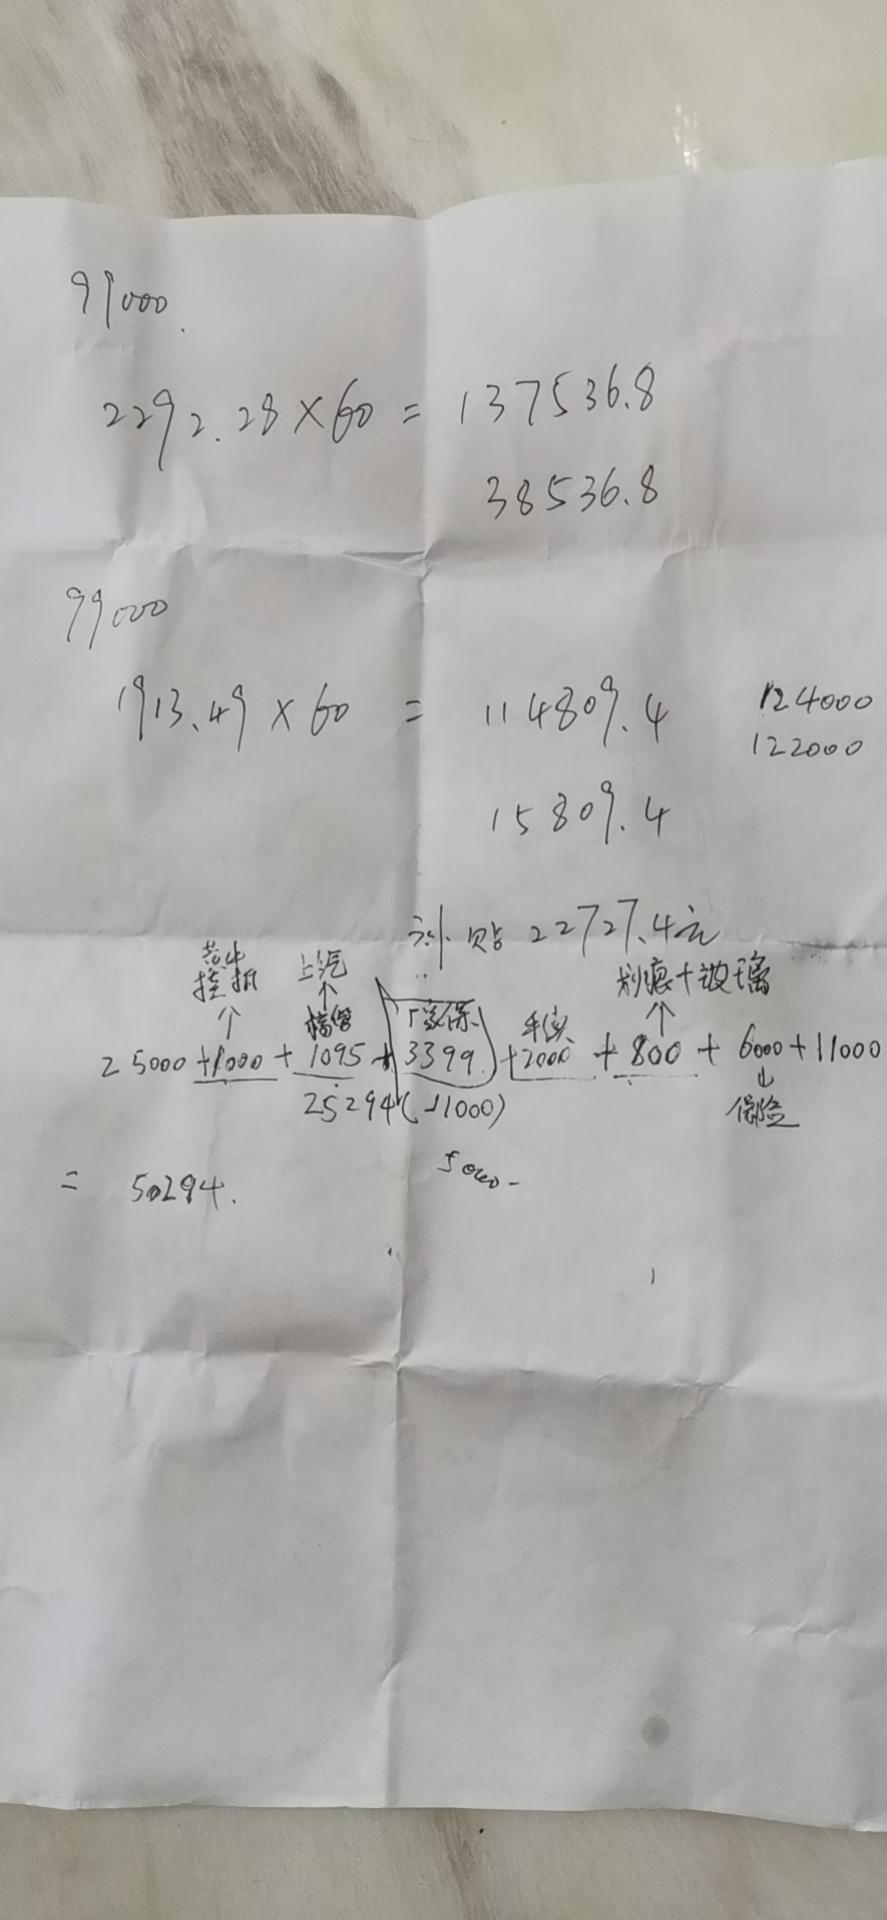 99000.
2292.28×60 = 137536.8
38536.8
99000
1913.49×60 = 114809.4 124000
15809.4 122000
补贴 22727.4元
上汽 划痕+玻璃
25000+1000+1095+3399+2000+800+6000+11000
25294(-11000) 保险
= 50294. 5000-